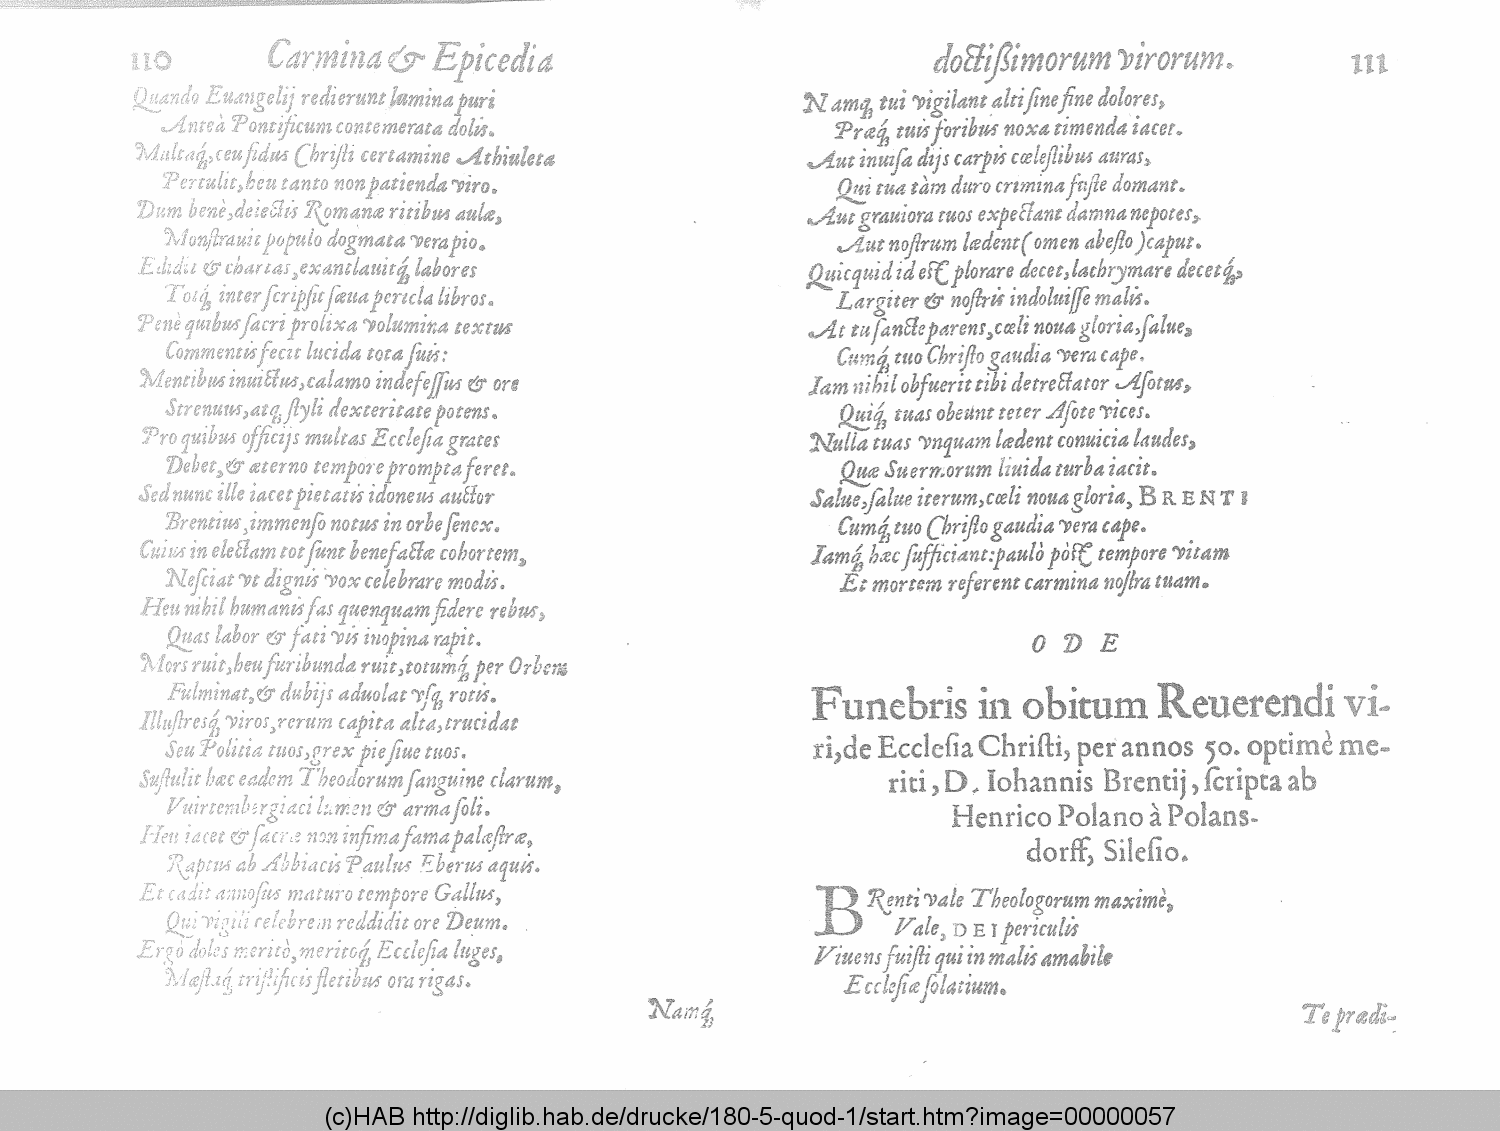 110 Carmina & Epicedia
Quando Euangelij redierunt lumina puri
Anteà Pontificum contemerata dolis.
Multaq́;, ceu fidus Christi certamine Athiuleta
Pertulit, heu tanto non patienda viro.
Dum benè, deiectis Romanæ ritibus aulæ,
Monstrauit populo dogmata vera pio.
Edidit & chartas, exantlauitq́; labores
Totq́; inter scripsit sæua pericla libros.
Penè quibus sacri prolixa volumina textus
Commentis fecit lucida tota suis:
Mentibus inuictus, calamo indefessus & ore
Strenuus, atq; styli dexteritate potens.
Pro quibus officijs multas Ecclesia grates
Debet, & æterno tempore prompta feret.
Sed nunc ille iacet pietatis idoneus auctor
Brentius, immenso notus in orbe senex.
Cuius in electam tot sunt benefacta cohortem,
Nesciat vt dignis vox celebrare modis.
Heu nihil humanis fas quenquam fidere rebus,
Quas labor & fati vis inopina rapit.
Mors ruit, heu furibunda ruit, totumq́; per Orbem
Fulminat, & dubijs aduolat vsq; rotis.
Illustresq́; viros, rerum capita alta, trucidat
Seu Politia tuos, grex pie siue tuos.
Sustulit hæc eadem Theodorum sanguine clarum,
Vuirtembergiaci lumen & arma soli.
Heu iacet & sacræ non infima fama palæstræ,
Raptus ab Abbiacis Paulus Eberus aquis.
Et cadit annosus maturo tempore Gallus,
Qui vigili celebrem reddidit ore Deum.
Ergò doles meritò, meritoq́; Ecclesia luges,
Mæstaq́; tristificis fletibus ora rigas.
Namq́;
doctißimorum virorum. 111
Namq́; tui vigilant alti sine fine dolores,
Præq́; tuis foribus noxa timenda iacet.
Aut inuisa dijs carpis cœlestibus auras,
Qui tua tàm duro crimina fuste domant.
Aut grauiora tuos expectant damna nepotes,
Aut nostrum lædent (omen abesto) caput.
Quicquid id est plorare decet, lachrymare decetq́;,
Largiter & nostris indoluisse malis.
At tu sancte parens, cœli noua gloria, salue,
Cumq́; tuo Christo gaudia vera cape.
Iam nihil obfuerit tibi detrectator Asotus,
Quiq́; tuas obeunt teter Asote vices.
Nulla tuas vnquam lædent conuicia laudes,
Quæ Suermorum liuida turba iacit.
Salue, salue iterum, cœli noua gloria, BRENTI
Cumq́; tuo Christo gaudia vera cape.
Iamq́; hæc sufficiant: paulò pòst tempore vitam
Et mortem referent carmina nostra tuam.
ODE
Funebris in obitum Reuerendi vi-
ri, de Ecclesia Christi, per annos 50. optimè me-
riti, D. Iohannis Brentij, scripta ab
Henrico Polano à Polans-
dorff, Silesio.
BRenti vale Theologorum maximè,
Vale, DEI periculis
Viuens fuisti qui in malis amabile
Ecclesiæ solatium.
Te prædi-
(c)HAB http://diglib.hab.de/drucke/180-5-quod-1/start.htm?image=00000057